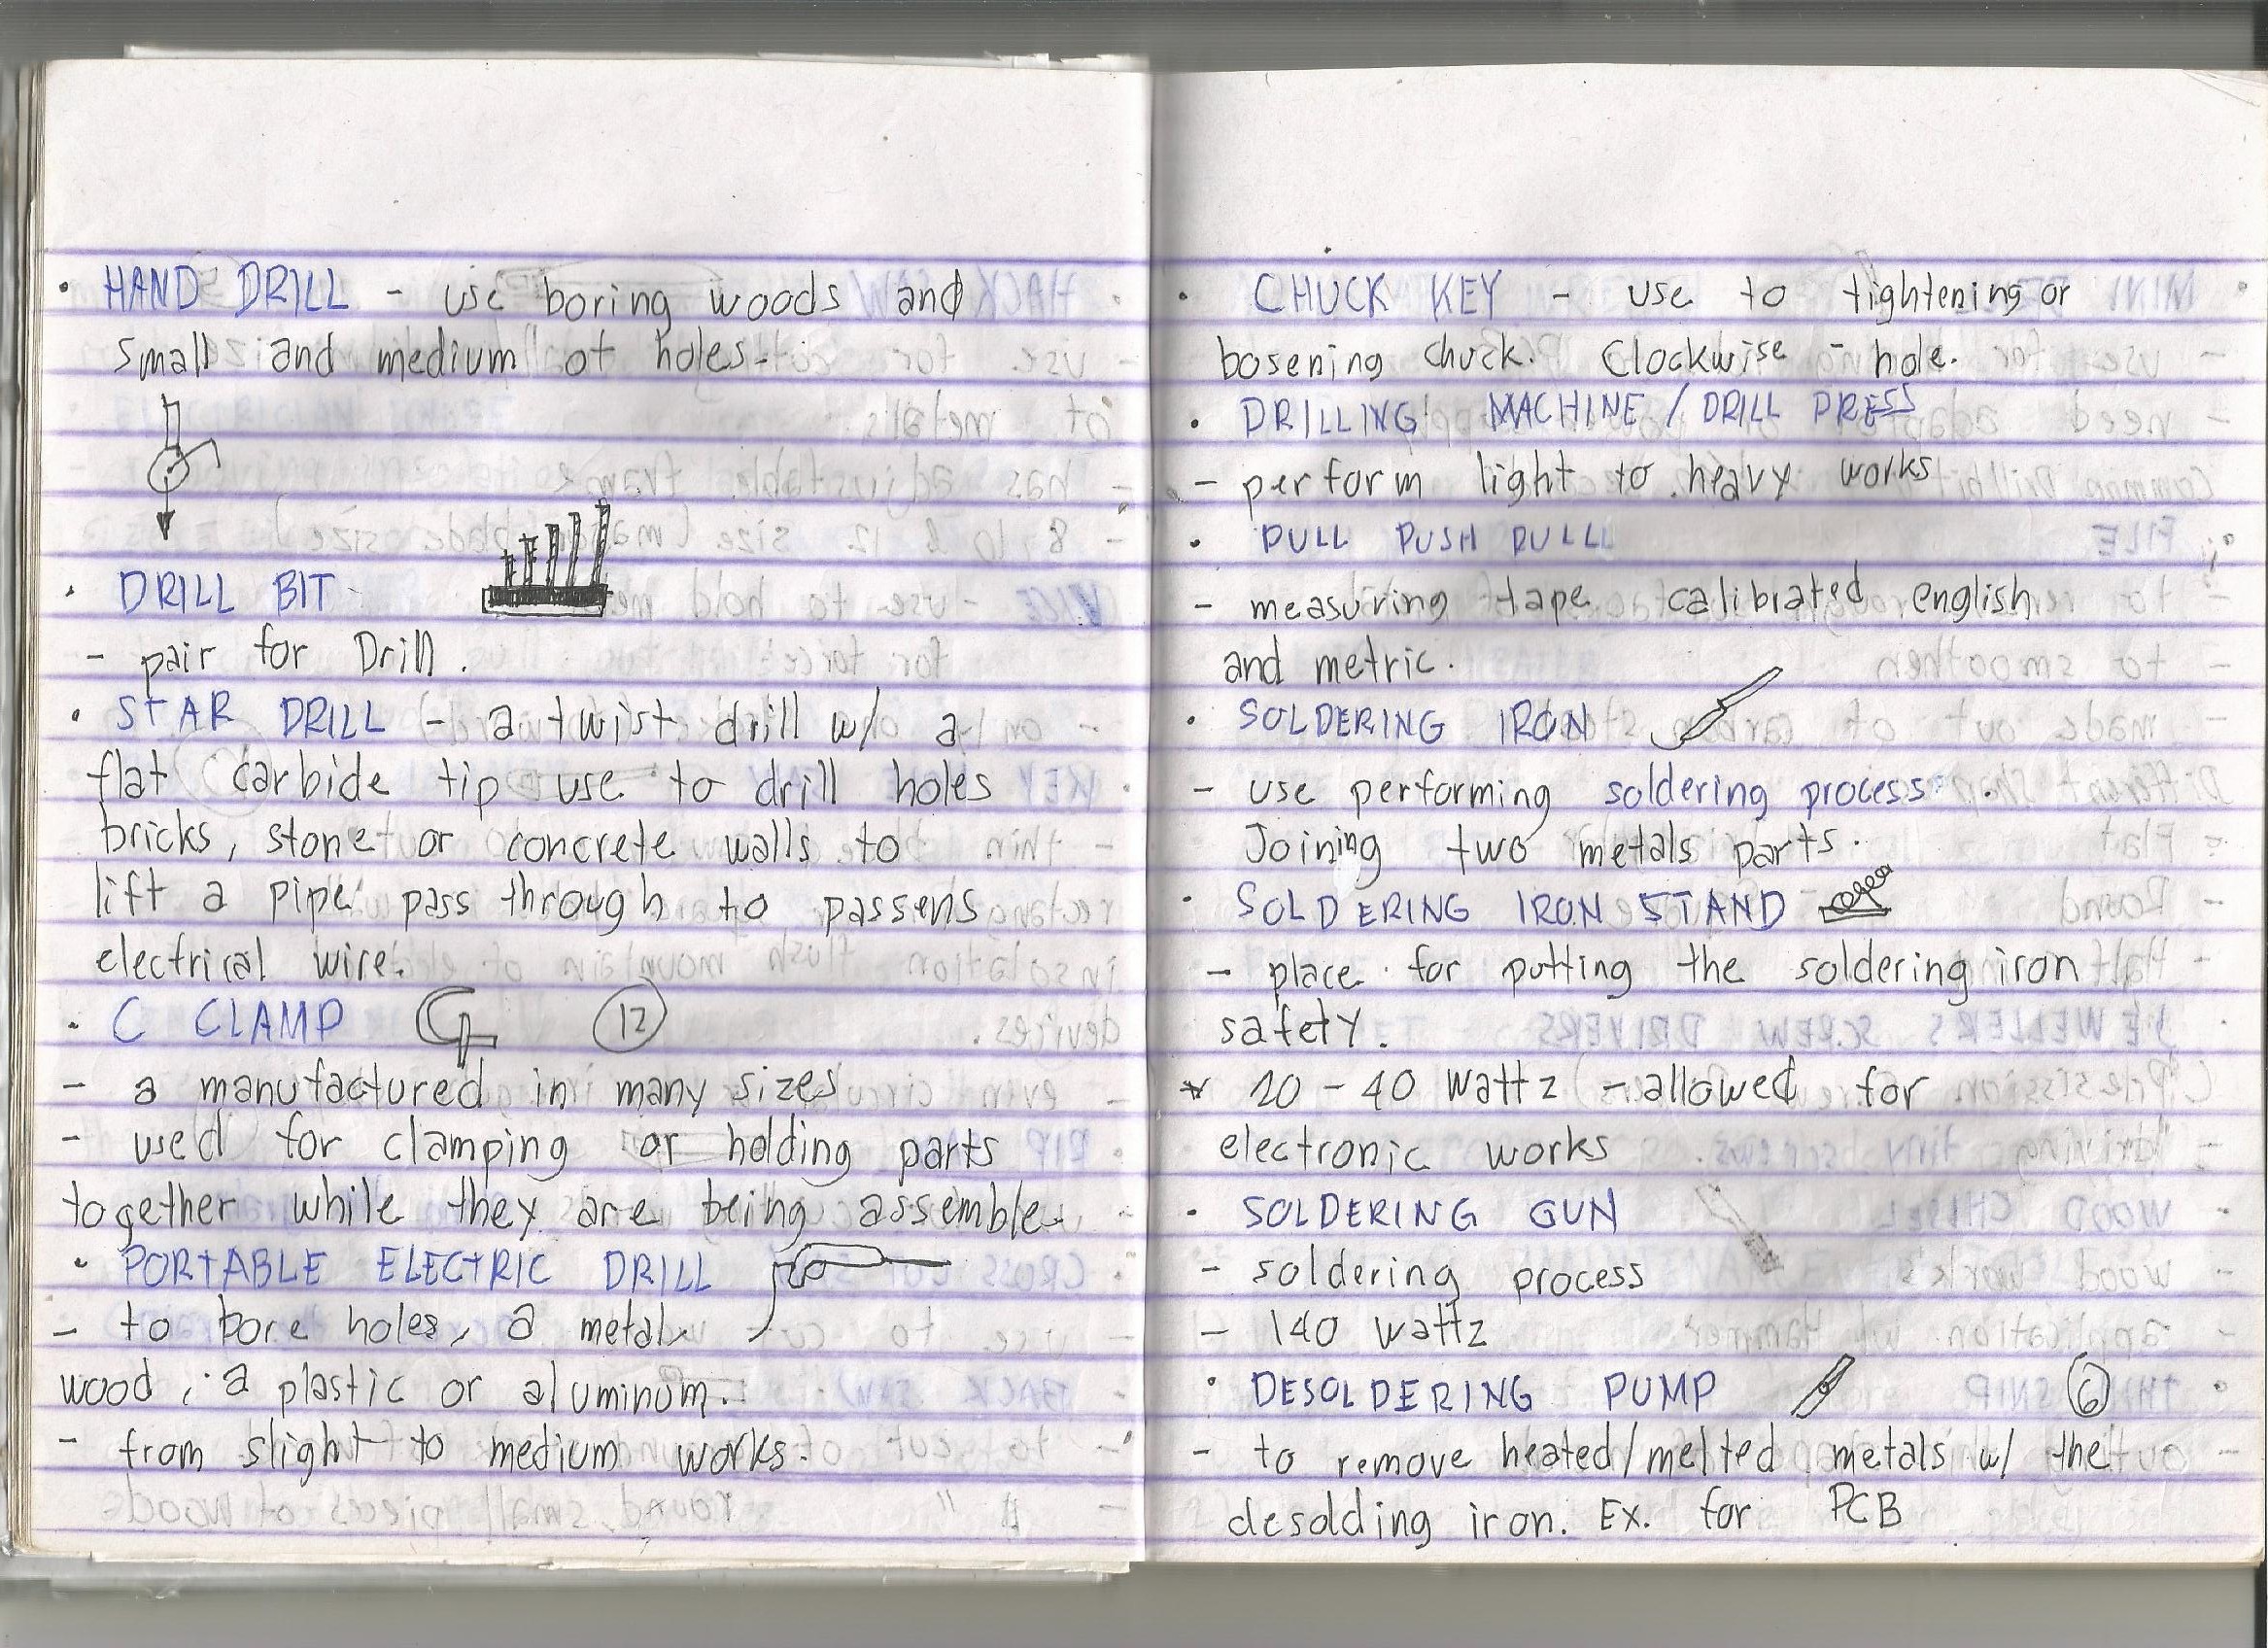 • HAND DRILL - use boring woods and
small and medium of holes.
• DRILL BIT
- pair for Drill.
• STAR DRILL - a twist drill w/ a
flat carbide tip use to drill holes
bricks, stone or concrete walls to
lift a pipe pass through to passens
electrical wire.
• C CLAMP 12
- a manufactured in many sizes
- used for clamping or holding parts
together while they are being assemble
• PORTABLE ELECTRIC DRILL
- to bore holes, a metal
wood, a plastic or aluminum.
- from slight to medium works.
• CHUCK KEY - use to tightening or
bosening chuck. Clockwise - hole.
• DRILLING MACHINE / DRILL PRESS
- perform light to heavy works
• PULL PUSH RULL
- measuring tape calibrated english
and metric.
• SOLDERING IRON
- use performing soldering process.
Joining two metals parts.
• SOLDERING IRON STAND
- place for putting the soldering iron
safety.
* 20 - 40 wattz - allowed for
electronic works
• SOLDERING GUN
- soldering process
- 140 wattz
• DESOLDERING PUMP 6
- to remove heated/melted metals w/ the
desolding iron. Ex. for PCB